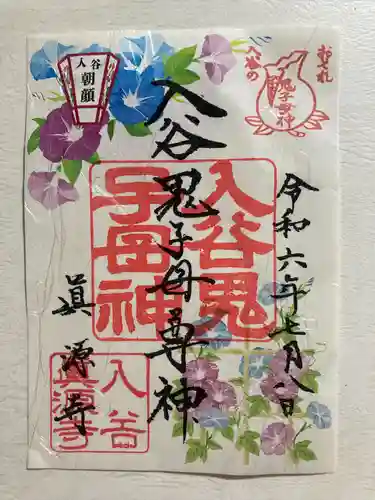 おそれ
入谷の
鬼子母神
入谷
朝顔
令和六年七月八日
入谷鬼子母尊神
眞源寺
入谷鬼
子母神
入谷
真源寺